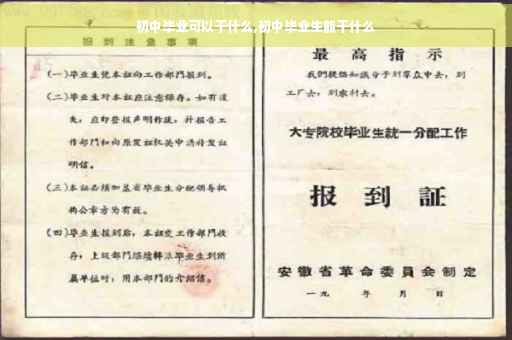 初中毕业可以干什么,初中毕业生能干什么
报到注意事项
(一)毕业生凭本证向工作部门报到。
(二)毕业生对本证应注意保存。如有遗
失,应即登报声明作废,并报告工
作部门和向原发证机关申请补发证
明信。
(三)本证必须加盖省毕业生分配领导机
构公章方为有效。
(四)毕业生报到后,本证交工作部门收
存;上级部门
毕业生到所
属单位时,用本部门的介绍信。
最高指示
我们提倡知识分子到群众中去,到
工厂去,到农村去。
大专院校毕业生統一分配工作
报到証
安徽省革命委員会制定
一九 年 月 日